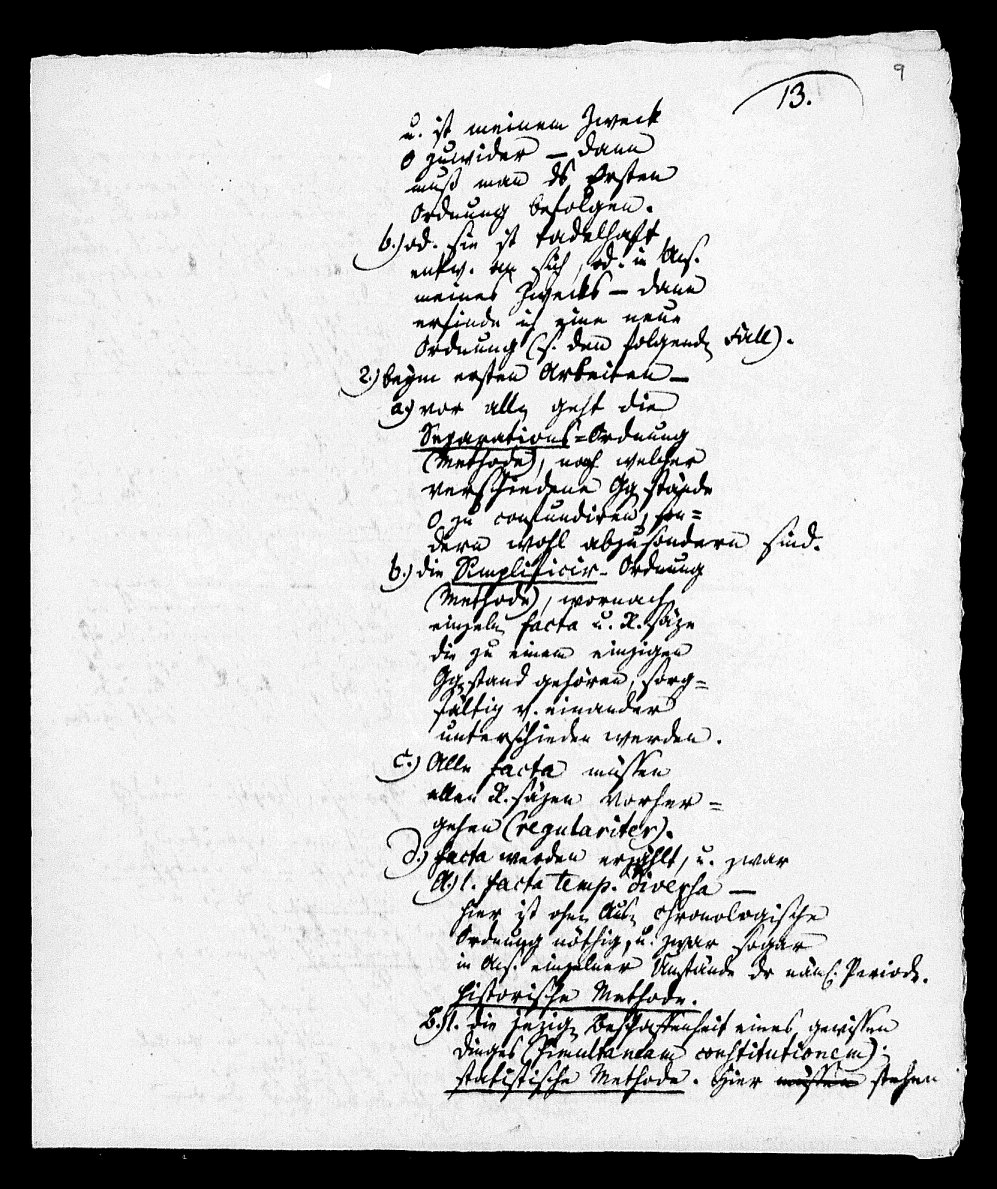 9
13.
u. ist meinem Zweck
0 zuwider – dann
muß man ds ersten
Ordnung befolgen.
b.) od. sie ist tadelhaft
entw. an sich, od. in Ans.
meines Zwecks – dann
erfinde ich eine neue
Ordnung (s. den folgende Fall).
2.) beym ersten Arbeiten –
a.) vor alle geht die
Separations=Ordnung
(Methode), nach welcher
verschiedene Gg stände
0 zu confundiren, son=
dern wohl abzusondern sind.
b.) die Simplificir- Ordnung
(Methode), wornach
einzeln facta u. R. säze
die zu einem einzigen
Gg stand gehören, sorg=
fältig v. einander
unterschieden werden.
c.) Alle facta müssen
allen R. säzen vorher=
gehen (regulariter).
d.) facta werden erzählt, u. zwar
A.) 1. facta temp. diversa –
hier ist ohne Ausn chronologische
Ordnung nöthig, u. zwar sogar
in Ans. einzelner Umstände dr näml. Periode.
historische Methode.
B.) 1. die jezige Beschaffenheit eines gewissen
Dinges (simultaneam constitutionem);
statistische Methode. Hier müssen stehen